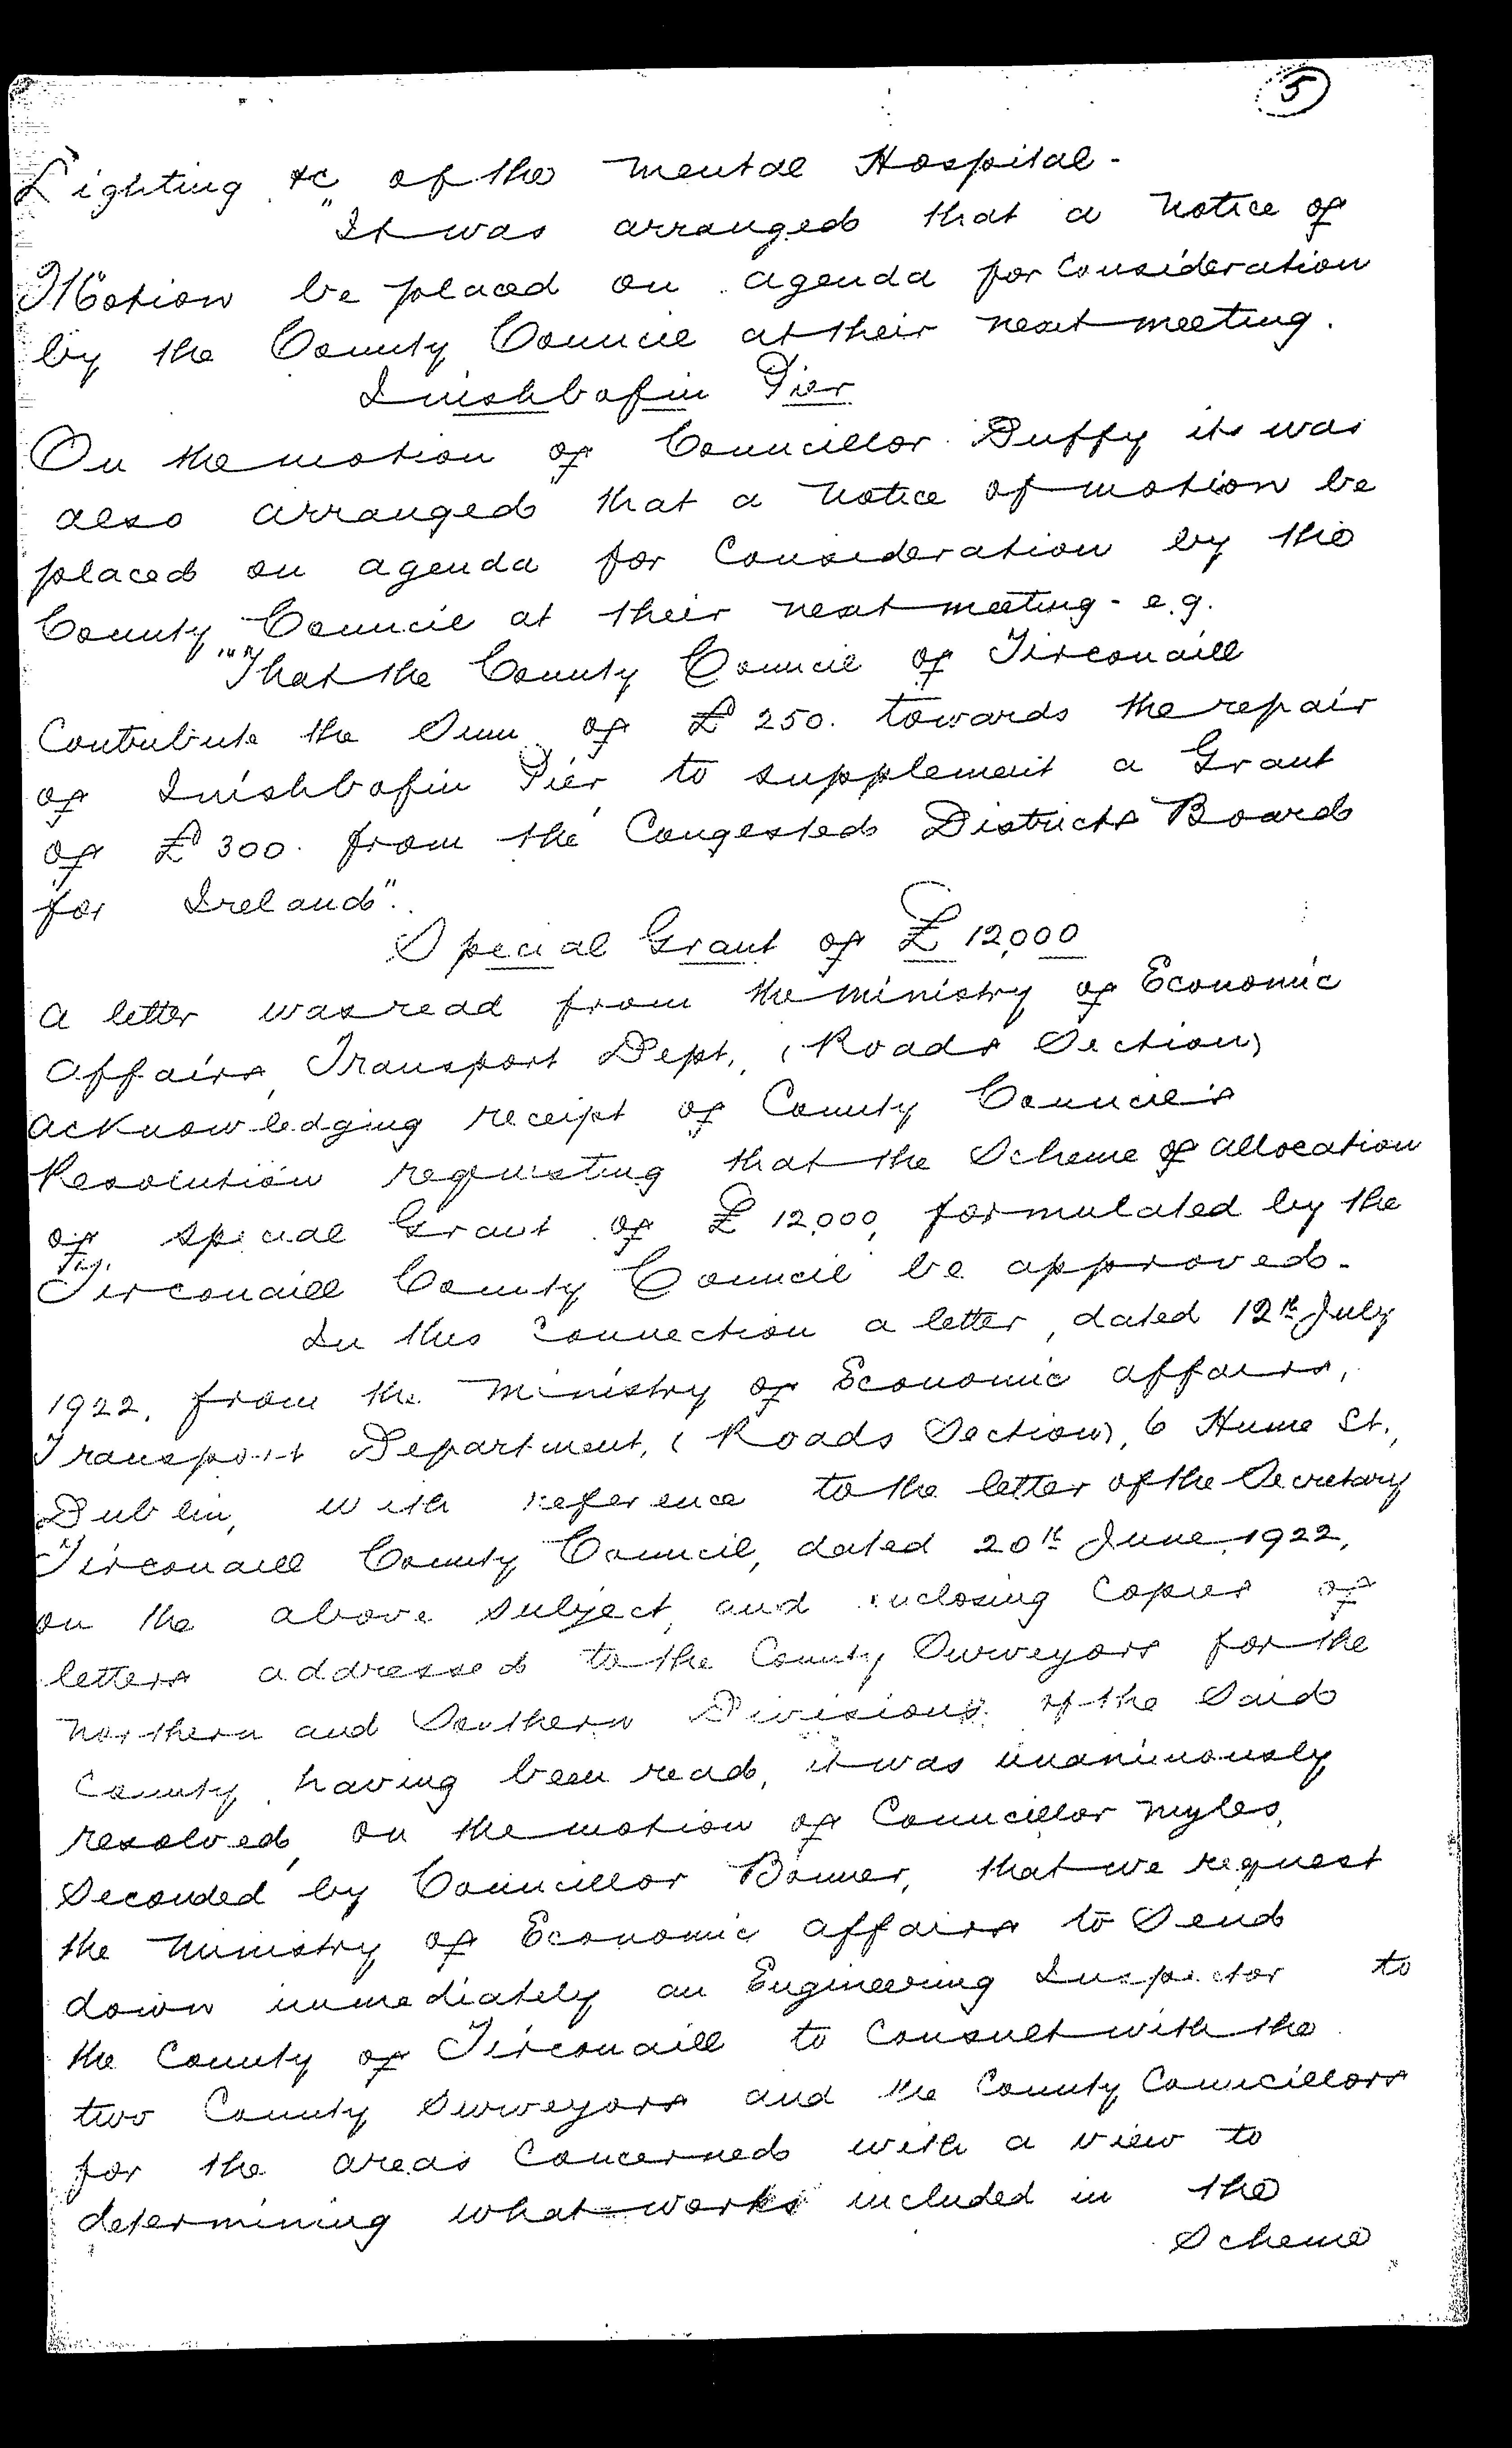 5
Lighting &c of the Mental Hospital -
"It was arranged that a notice of
Motion be placed on agenda for consideration
by the County Council at their next meeting.
Inishbofin Pier
On the motion of Councillor Duffy it was
also arranged that a notice of motion be
placed on agenda for consideration by the
County Council at their next meeting - e.g.
"That the County Council of Tirconaill
Contribute the Sum of £250. towards the repair
of Inishbofin Pier, to supplement a Grant
of £300. from the Congested Districts Board
for Ireland".
Special Grant of £12,000
A letter was read from the Ministry of Economic
Affairs, Transport Dept., (Roads Section)
acknowledging receipt of County Council's
Resolution requesting that the Scheme of allocation
of special Grant of £12,000, formulated by the
Tirconaill County Council be approved.
In this connection a letter, dated 12th July
1922, from the Ministry of Economic Affairs,
Transport Department, (Roads Section), 6 Hume St.,
Dublin, with reference to the letter of the Secretary
Tirconaill County Council, dated 20th June, 1922,
on the above subject, and inclosing copies of
letters addressed to the County Surveyors for the
Northern and Southern Divisions of the Said
County having been read, it was unanimously
resolved, on the motion of Councillor Myles,
Seconded by Councillor Bonner, that we request
the Ministry of Economic Affairs to Send
down immediately an Engineering Inspector to
the County of Tirconaill to consult with the
two County Surveyors and the County Councillors
for the areas concerned with a view to
determining what works included in the
Scheme